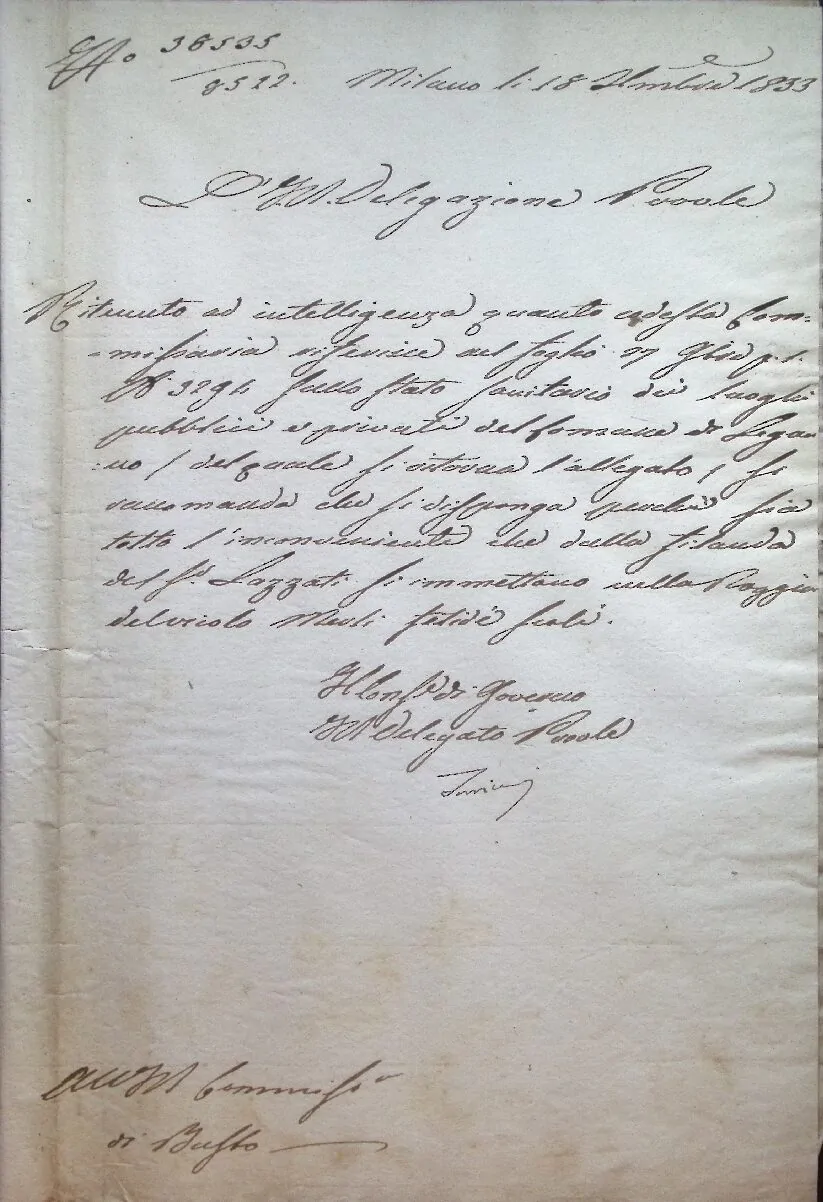 N.º 38535
8522. Milano li 18 Xmbre 1833
L'I.R. Delegazione Provle
Ritenuto ad intelligenza quanto codesta Com=
=missaria riferisce nel foglio 27 9bre p.p.
N. 3294 sullo stato sanitario dei luoghi
pubblici e privati del Comune di Legna=
=no / del quale si ritorna l'allegato / si
raccomanda che si disponga perchè sia
tolto l'inconveniente che dalla filanda
del Sr Lazzati si immettano nella Roggia
del vicolo
Il Consre di Governo
I.R. Delegato Provle
All'I.R. Commissra
di Busto